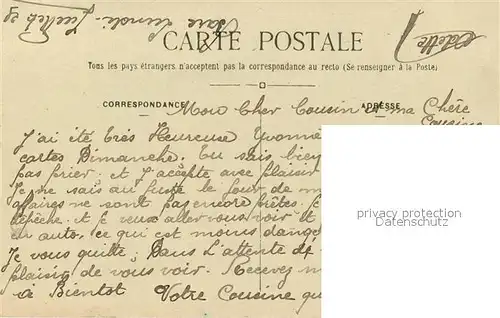 Juillet 29
Odette
CARTE POSTALE
Tous les pays étrangers n'acceptent pas la correspondance au recto (Se renseigner à la Poste)
CORRESPONDANCE
ADRESSE
Mon Cher Cousin et ma Chère
Cousine
J'ai été très Heureuse Yvonne
cartes Dimanche. Tu sais bien
pas prier. et J'accepte avec plaisir
Je ne sais au juste le Jour de m
affaires ne sont pas encore prêtes. J
dépêche. et Je veux aller vous voir et
en auto, ce qui est moins dange
Je vous quitte, Dans L'attente de
plaisir de vous voir. Recevez m
à Bientot Votre Cousine qu
privacy protection
Datenschutz